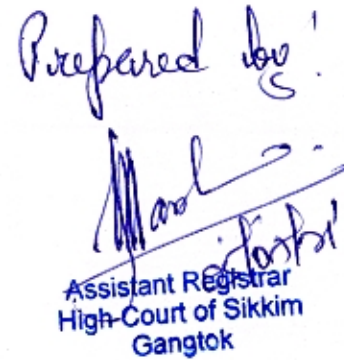 Prepared by:
Assistant Registrar
High Court of Sikkim
Gangtok